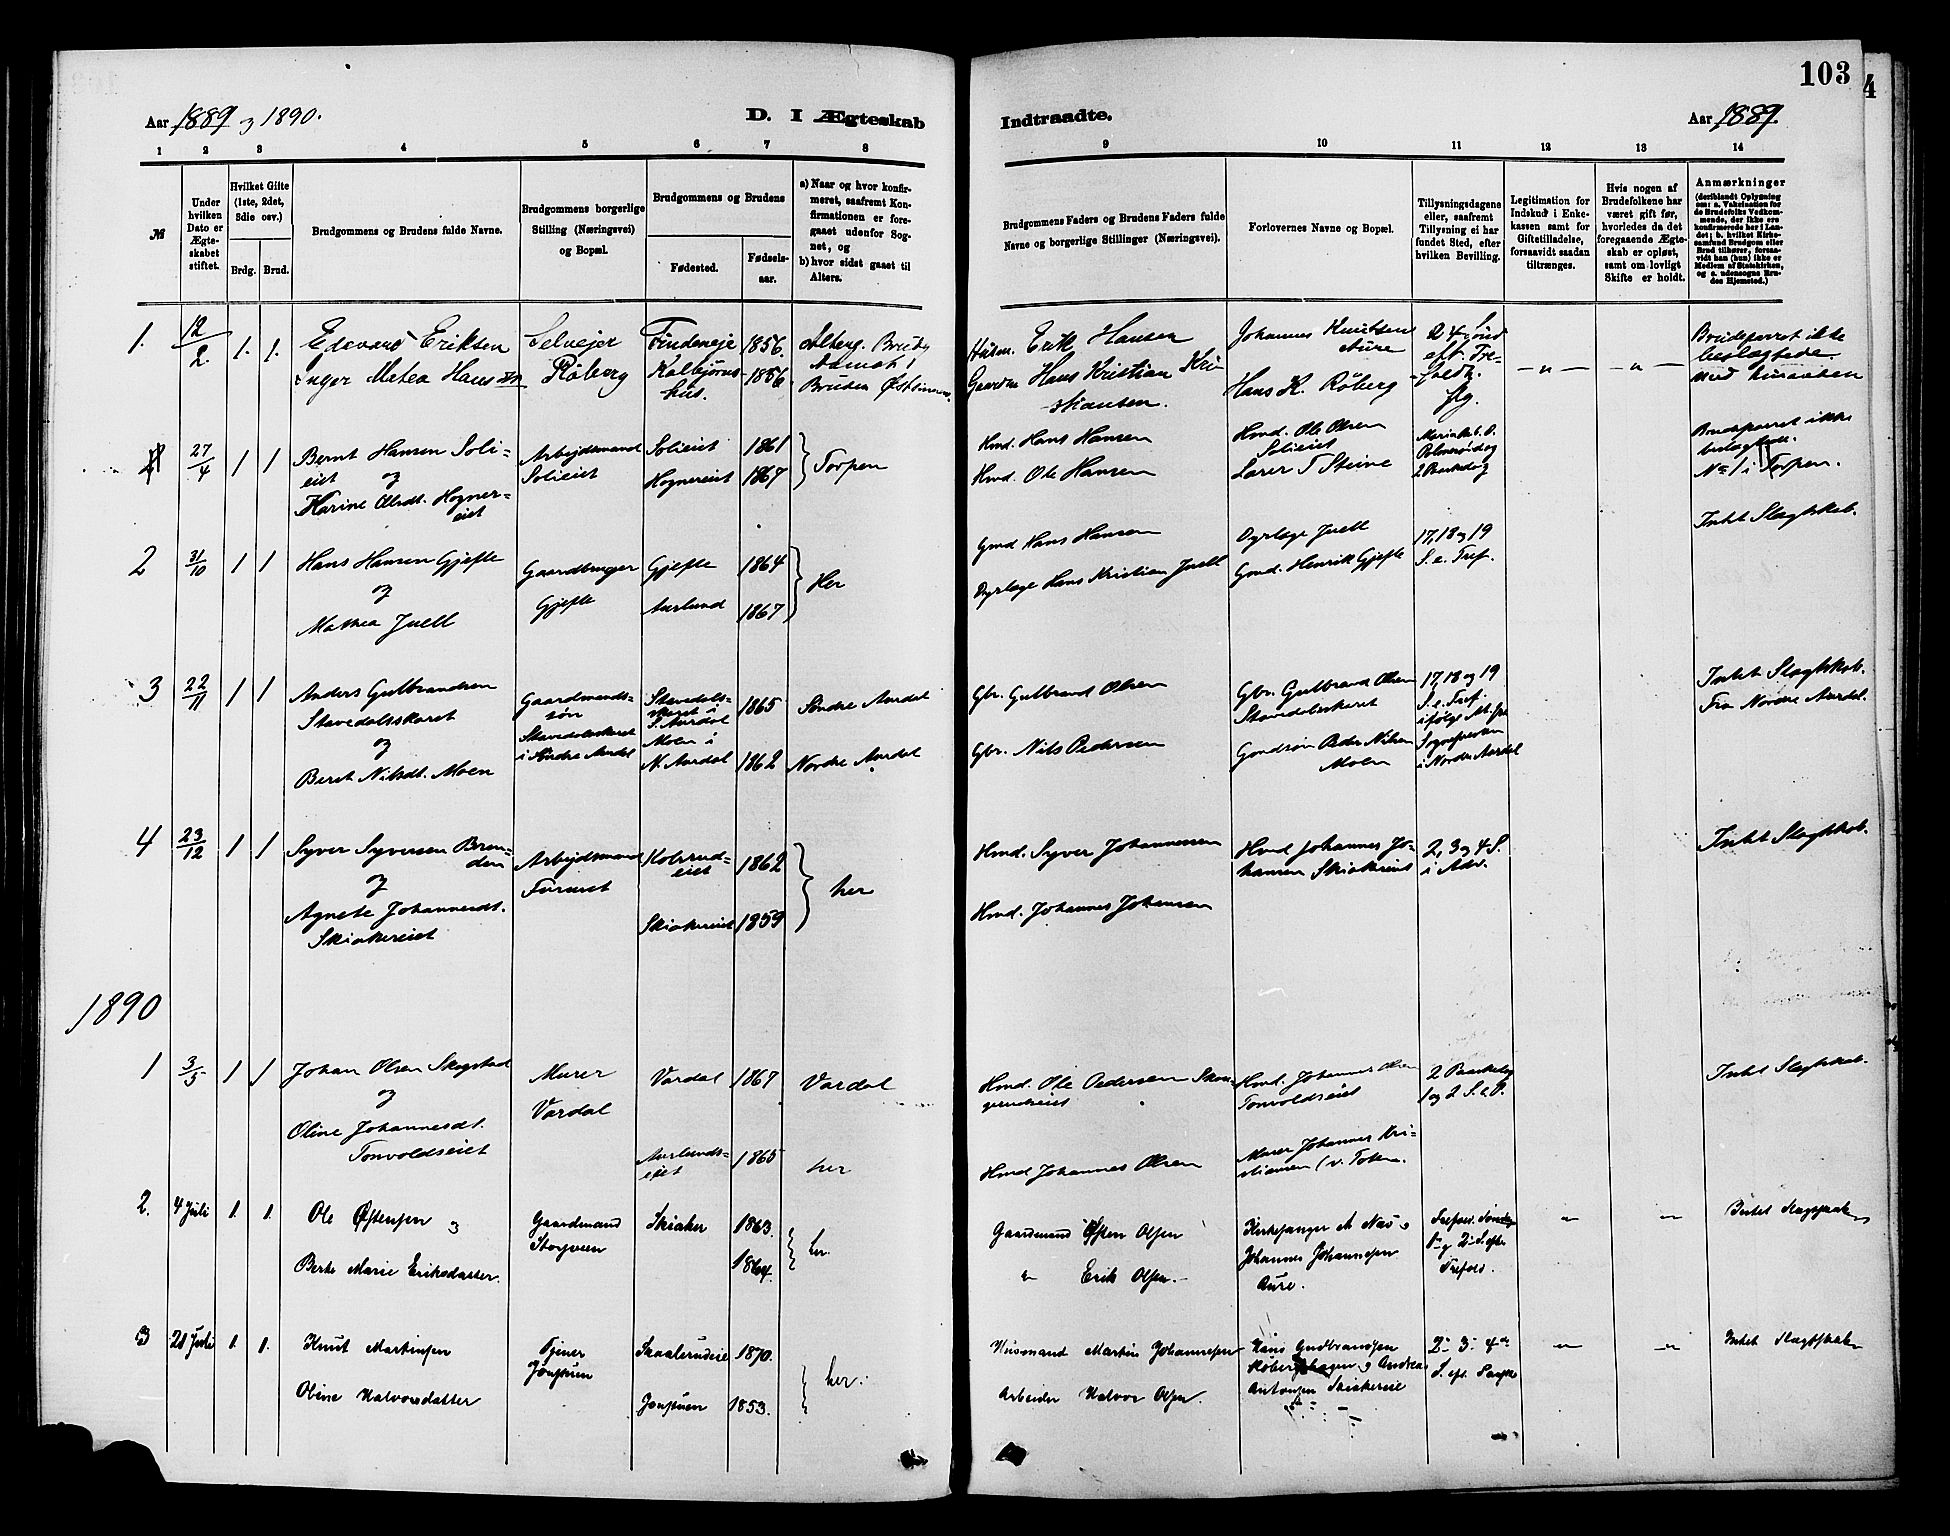 103
4
Aar 1889 og 1890.
D. I Ægteskab
Indtraadte.
Aar 1889.
1 2 3 4 5 6 7 8
9 10 11 12 13 14
№
Under
hvilken
Dato er
Ægte-
skabet
stiftet.
Hvilket Gifte
(1ste, 2det,
3die osv.)
Brdg. Brud.
Brudgommens og Brudens fulde Navne.
Brudgommens borgerlige
Stilling (Næringsvei)
og Bopæl.
Brudgommens og Brudens
Fødested.
Fødsels-
aar.
a) Naar og hvor konfir-
meret, saafremt Kon-
firmationen er fore-
gaaet udenfor Sog-
net, og
b) hvor sidst gaaet til
Alters.
Brudgommens Faders og Brudens Faders fulde
Navne og borgerlige Stillinger (Næringsvei).
Forlovernes Navne og Bopæl.
Tillysningsdagene
eller, saafremt
Tillysning ei har
fundet Sted, efter
hvilken Bevilling.
Legitimation for
Indskud i Enke-
kassen samt for
Giftetilladelse,
forsaavidt saadan
tiltrænges.
Hvis nogen af
Brudefolkene har
været gift før,
hvorledes da det
foregaaende Ægte-
skab er opløst,
samt om lovligt
Skifte er holdt.
Anmærkninger
(deriblandt Oplysning
om: a. Vakcination for
de Brudefolks Vedkom-
mende, der ikke ere
konfirmerede her i Lan-
det; b. hvilket Kirke-
samfund Brudgom eller
Brud tilhører, forsaa-
vidt han (hun) ikke er
Medlem af Statskirken,
og c. udensogns Bru-
des Hjemsted.)
1. 12/2. 1. 1.
Edevard Eriksen
Inger Matea Hansdtr
Selveier
Røberg
1856.
1856.
Husm. Erik Hansen
Gaardm Hans Kristian Kri-
stiansen.
Johannes Knutsen
Aure
Hans K. Røberg
Brudeparret ikke
beslægtede.
27/4 1 1
Bernt Hansen Soli-
eiet og
Karine Olsdt. Hogner-
eiet
Arbejdsmand
Solieiet
Solieiet
Hognereiet
1861
1867
Torpen
Hmd. Hans Hansen
Hmd. Ole Hansen
Hmd. Ole Olsen
Solieiet
Brudeparret ikke
№ 1 i Torpen.
2 31/10 1 1
Hans Hansen Gjefle
og
Mathea Juell
Gaardbruger
Gjefle
Gjefle
Aurlund
1864
1867
Her
Gmd Hans Hansen
Dyrlæge Hans Kristian Juell
Dyrlæge Juell
Gmd. Henrik Gjefle
17, 18 og 19
S. e. Tref.
Intet Slægtskab.
3 22/11 1 1
Anders Gulbrandsen
Stavedalsskaret
og
Berit Nilsdt. Moen
Gaardmands-
søn
Stavedalsskaret
i Søndre Aurdal
Stavedals-
skaret i
S. Aurdal
Moen i
N. Aurdal
1865
1862
Søndre Aurdal
Nordre Aurdal
Gbr. Gulbrand Olsen
Gbr. Nils Pedersen
Gbr. Gulbrand Olsen
Stavedalsskaret
Gmdsøn Peder Nilsen
Moen
17, 18 og 19
S. e. Tref.
ifølge At. fra
Sognepresten
i Nordre Aurdal
Intet Slægtskab.
Fra Nordre Aurdal.
4 23/12 1 1
Syver Syversen Bren-
den
og
Agnete Johannesdt.
Skiakereiet
Arbejdsmand
Furueiet
Kolsrud-
eiet
Skiakereiet
1862
1859
her
Hmd. Syver Johannesen
Hmd. Johannes Johansen
Hmd Johannes Jo-
hansen Skiakereiet
2, 3 og 4 S.
i Adv.
Intet Slægtskab.
1890
1 3/5 1 1
Johan Olsen Skogstad
og
Oline Johannesdt.
Tonvoldseiet
Murer
Vardal
Vardal
Aurlunds-
eiet
1867
1865
Vardal
her
Hmd. Ole Pedersen
Hmd Johannes Olsen
Hmd. Johannes Olsen
Tonvoldseiet
Murer Johannes Kri-
stiansen (v. Toten.
2 Paaskedag
1 og 2 S. e. P.
Intet Slægtskab.
2. 4 Juli 1. 1.
Ole Østensen og
Berte Marie Eriksdatter.
Gaardmand
Skiaker
1863.
1864.
her.
Gaardmand Østen Olsen
" Erik Olsen.
Kirkesanger A Næs og
Johannes Johannesen
Aure.
Intet Slægtskab
3 21 Juli 1. 1.
Knut Martinsen
Oline Halvorsdatter
Tjener
1870.
1853.
her.
Husmand Martin Johannesen
Arbeider Halvor Olsen.
Hans Gudbrandsen
Røberghagen og Andreas
Antonsen Skiakereie
2- 3- 4de
Intet Slægtskab